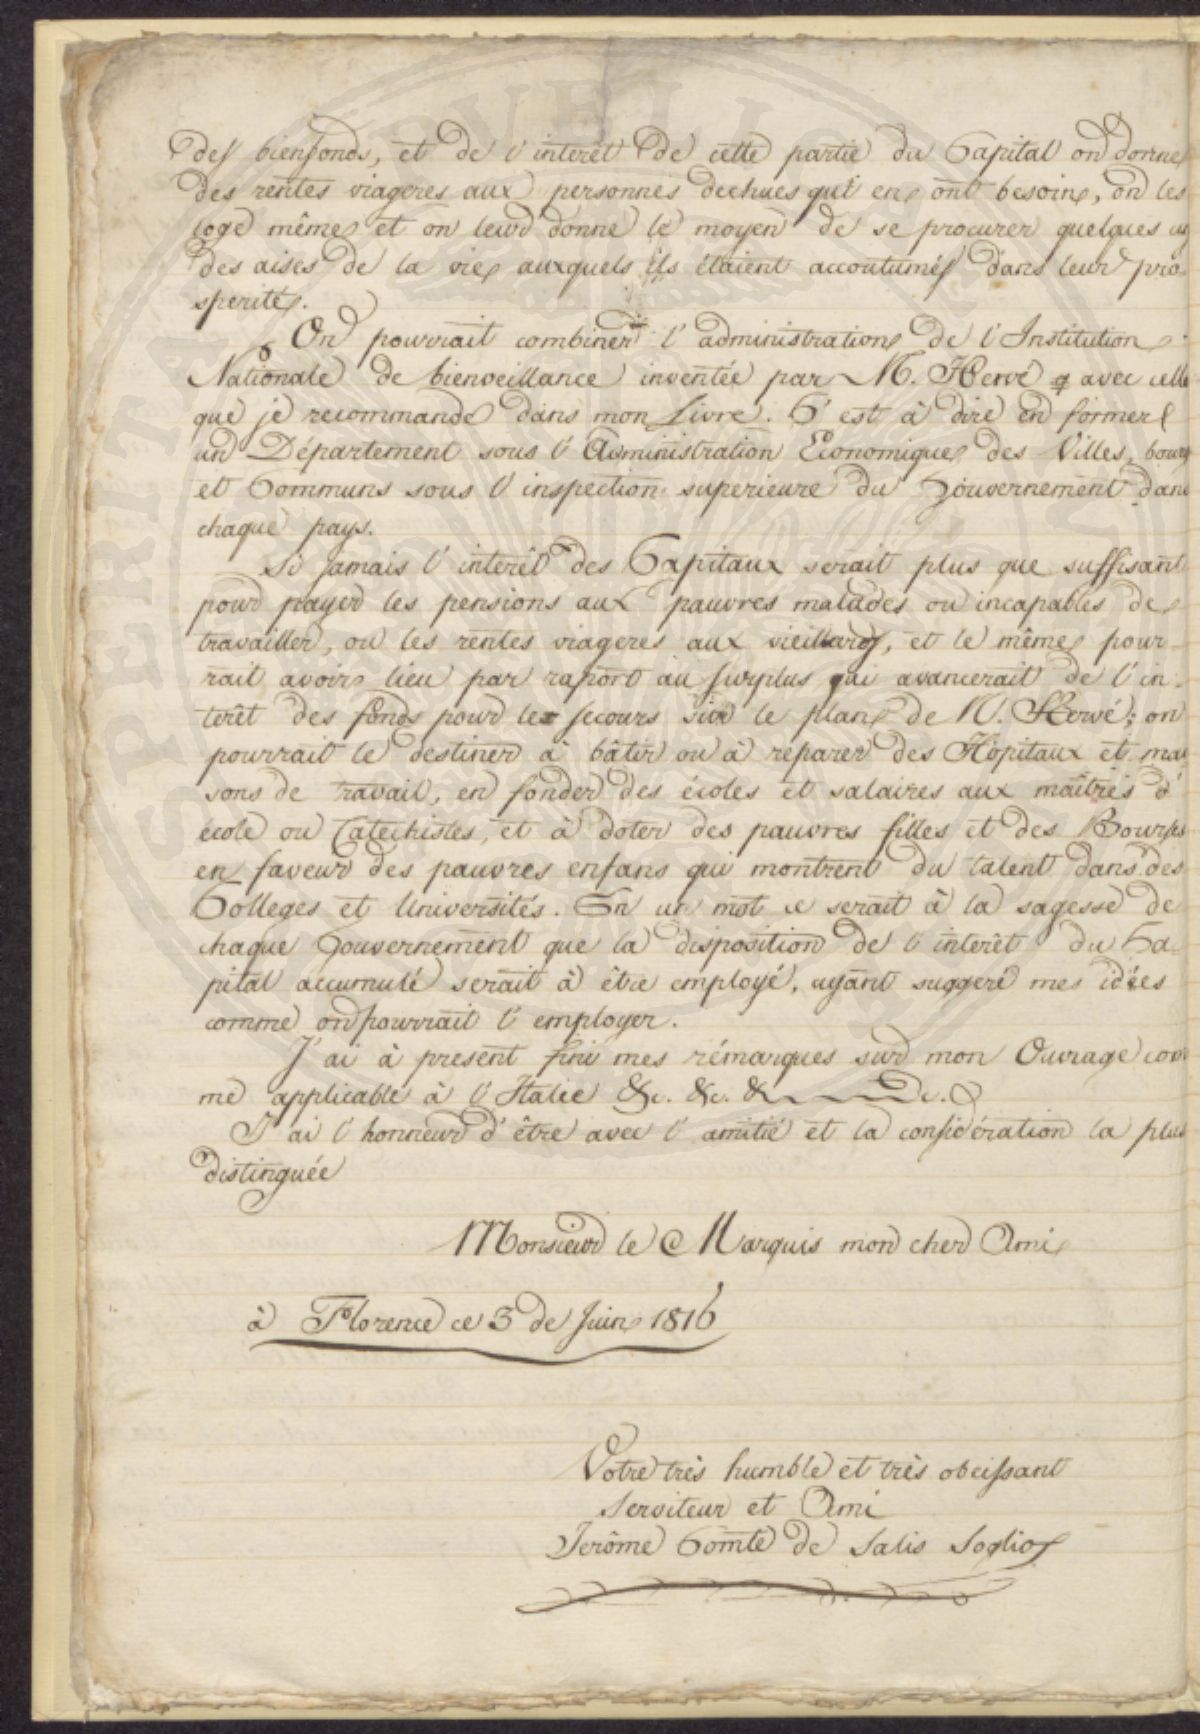 des bienfonds, et de l'interêt de cette partie du Capital on donne
des rentes viageres aux personnes dechues qui en ont besoin, on les
loge même et on leur donne le moyen de se procurer quelques
des aises de la vie auxquels ils étaient accoutumés dans leur pro-
sperité.
On pourrait combiner l'administration de l'Institution
Nationale de bienveillance inventée par M. Hervé avec celle
que je recommande dans mon Livre. C'est à dire en former
un Département sous l'Administration Economique des Villes, bourgs
et Communs sous l'inspection superieure du Gouvernement dans
chaque pays.
Si jamais l'interêt des Capitaux serait plus que suffisant
pour payer les pensions aux pauvres malades ou incapables de
travailler, ou les rentes viageres aux vieillards, et le même pour-
rait avoir lieu par raport au surplus qui avancerait de l'in-
terêt des fonds pour les secours sur le plan de M. Hervé; on
pourrait le destiner à bâtir ou à reparer des Hôpitaux et mai
sons de travail, en fonder des écoles et salaires aux maîtres d'
école ou Catechistes, et à doter des pauvres filles et des Bourses
en faveur des pauvres enfans qui montrent du talent dans des
Colleges et Universités. En un mot ce serait à la sagesse de
chaque Gouvernement que la disposition de l'interêt du Ca-
pital accumulé serait à être employé, ayant suggeré mes idées
comme on pourrait l'employer.
J'ai à present fini mes rémarques sur mon Ouvrage com
me applicable à l'Italie &c. &c. &c.
J'ai l'honneur d'être avec l'amitié et la considération la plus
distinguée
Monsieur le Marquis mon cher Ami
à Florence ce 3 de Juin 1816
Votre très humble et très obeissant
Serviteur et Ami
Jerôme Comte de Salis Soglio